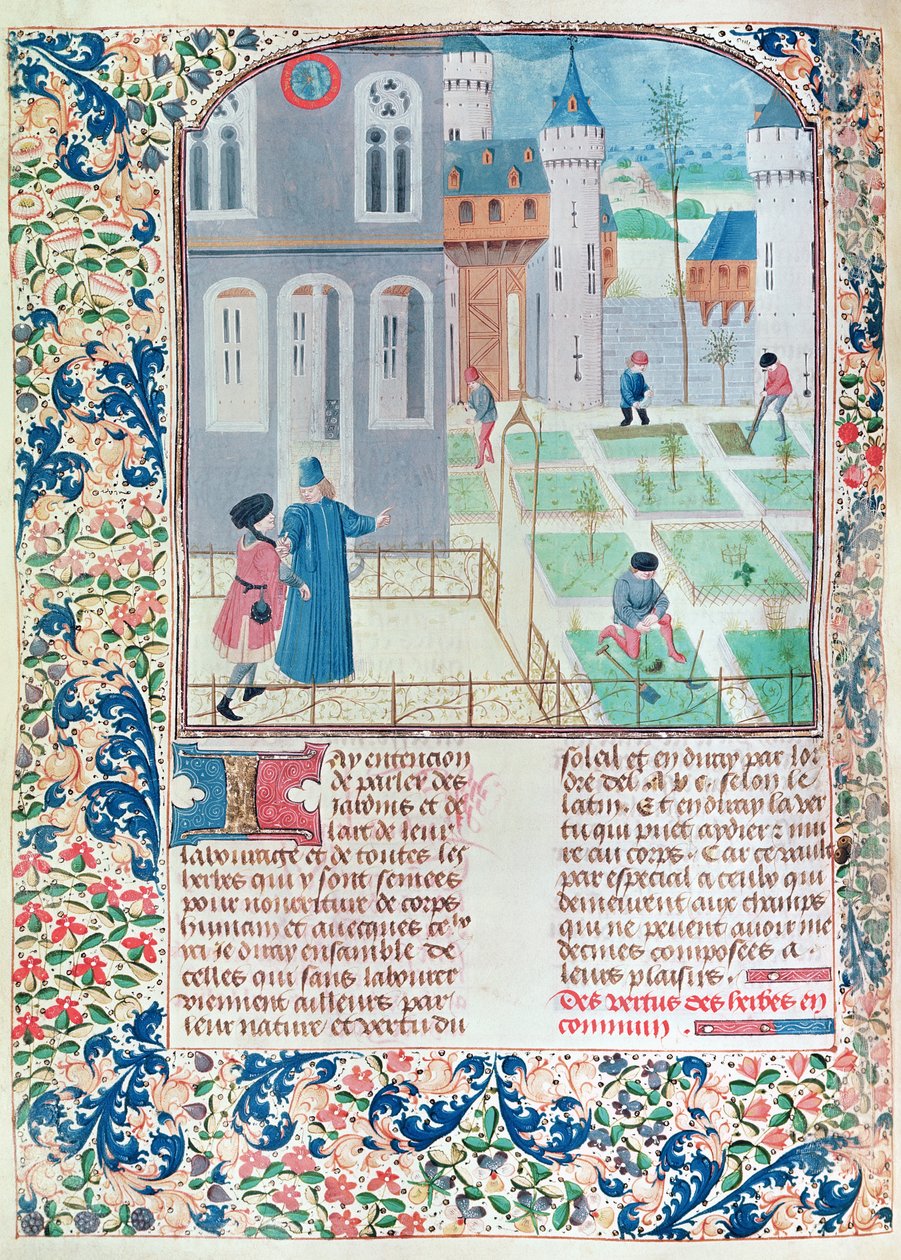 Ay entencion
de parler des
jardins et de
lart de leur
labourage et de toutes les
herbes qui y sont semees
pour nourriture de corps
humain et avecques celx
ci je diray ensamble de
celles qui sans labourer
viennent ailleurs par
leur nature et vertu du
soleil et en diray par lor
dre del A b c. selon le
latin. Et en diray la ver
tu qui puet aydier z nui
re au corps. Car ce vault
par especial a ceulx qui
demeurent aux champs
qui ne peuent avoir me
decines composees a
leurs plaisirs.
Des vertus des herbes en
commun.